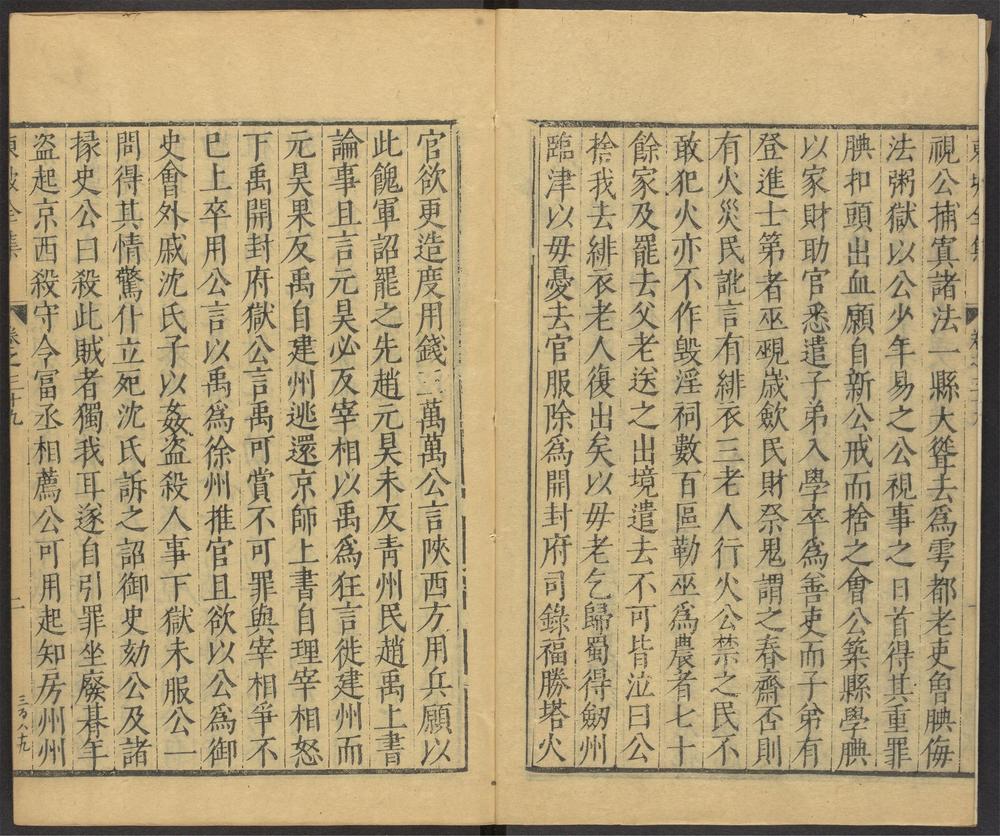 東坡全集
卷之三十九
視公捕寘諸法一縣大聳去為雩都老吏魯腆侮
法粥獄以公少年易之公視事之日首得其重罪
腆扣頭出血願自新公戒而捨之會公築縣學腆
以家財助官悉遣子弟入學卒為善吏而子弟有
登進士第者巫覡歲斂民財祭鬼謂之春齋否則
有火災民訛言有緋衣三老人行火公禁之民不
敢犯火亦不作毀淫祠數百區勒巫為農者七十
餘家及罷去父老送之出境遣去不可皆泣曰公
捨我去緋衣老人復出矣以毋老乞歸蜀得劒州
臨津以毋憂去官服除為開封府司錄福勝塔火
官欲更造度用錢三萬萬公言陝西方用兵願以
此餽軍詔罷之先趙元昊未反青州民趙禹上書
論事且言元昊必反宰相以禹為狂言徙建州而
元昊果反禹自建州逃還京師上書自理宰相怒
下禹開封府獄公言禹可賞不可罪與宰相爭不
已上卒用公言以禹為徐州推官且欲以公為御
史會外戚沈氏子以姦盜殺人事下獄未服公一
問得其情驚仆立死沈氏訴之詔御史劾公及諸
掾史公曰殺此賊者獨我耳遂自引罪坐廢朞年
盜起京西殺守令富丞相薦公可用起知房州州
東坡全集
卷之三十九
二
三百八九